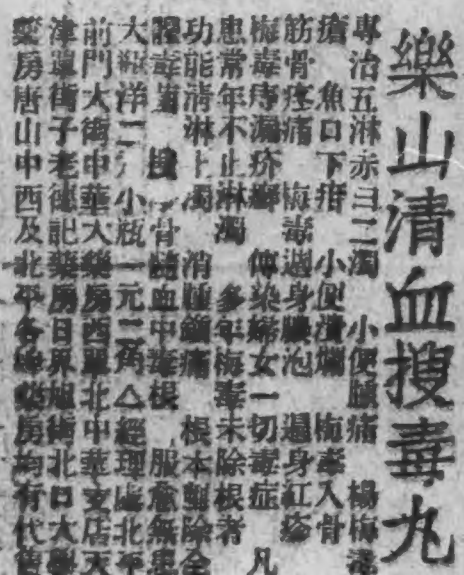 樂山清血搜毒丸
專治五淋赤白二濁 小便腫痛 楊梅毒
瘡 魚口下疳 小便潰爛 梅毒入骨
筋骨疼痛 梅毒遍身膿泡 遍身紅疹
梅毒痔漏疥癬 傳染婦女一切毒症 凡
患常年不止淋濁 多年梅毒未除根者
功能清淋止濁 消腫鎮痛 根本剷除全
髓毒 骨髓血中毒根 服愈無患
大瓶洋二元小瓶一元二角△經理處北平
前門大街中華大藥房西單北中華支店天
津 街子老德記藥房日界旭街北口大
藥房唐山中西及北平各 藥房均有代售